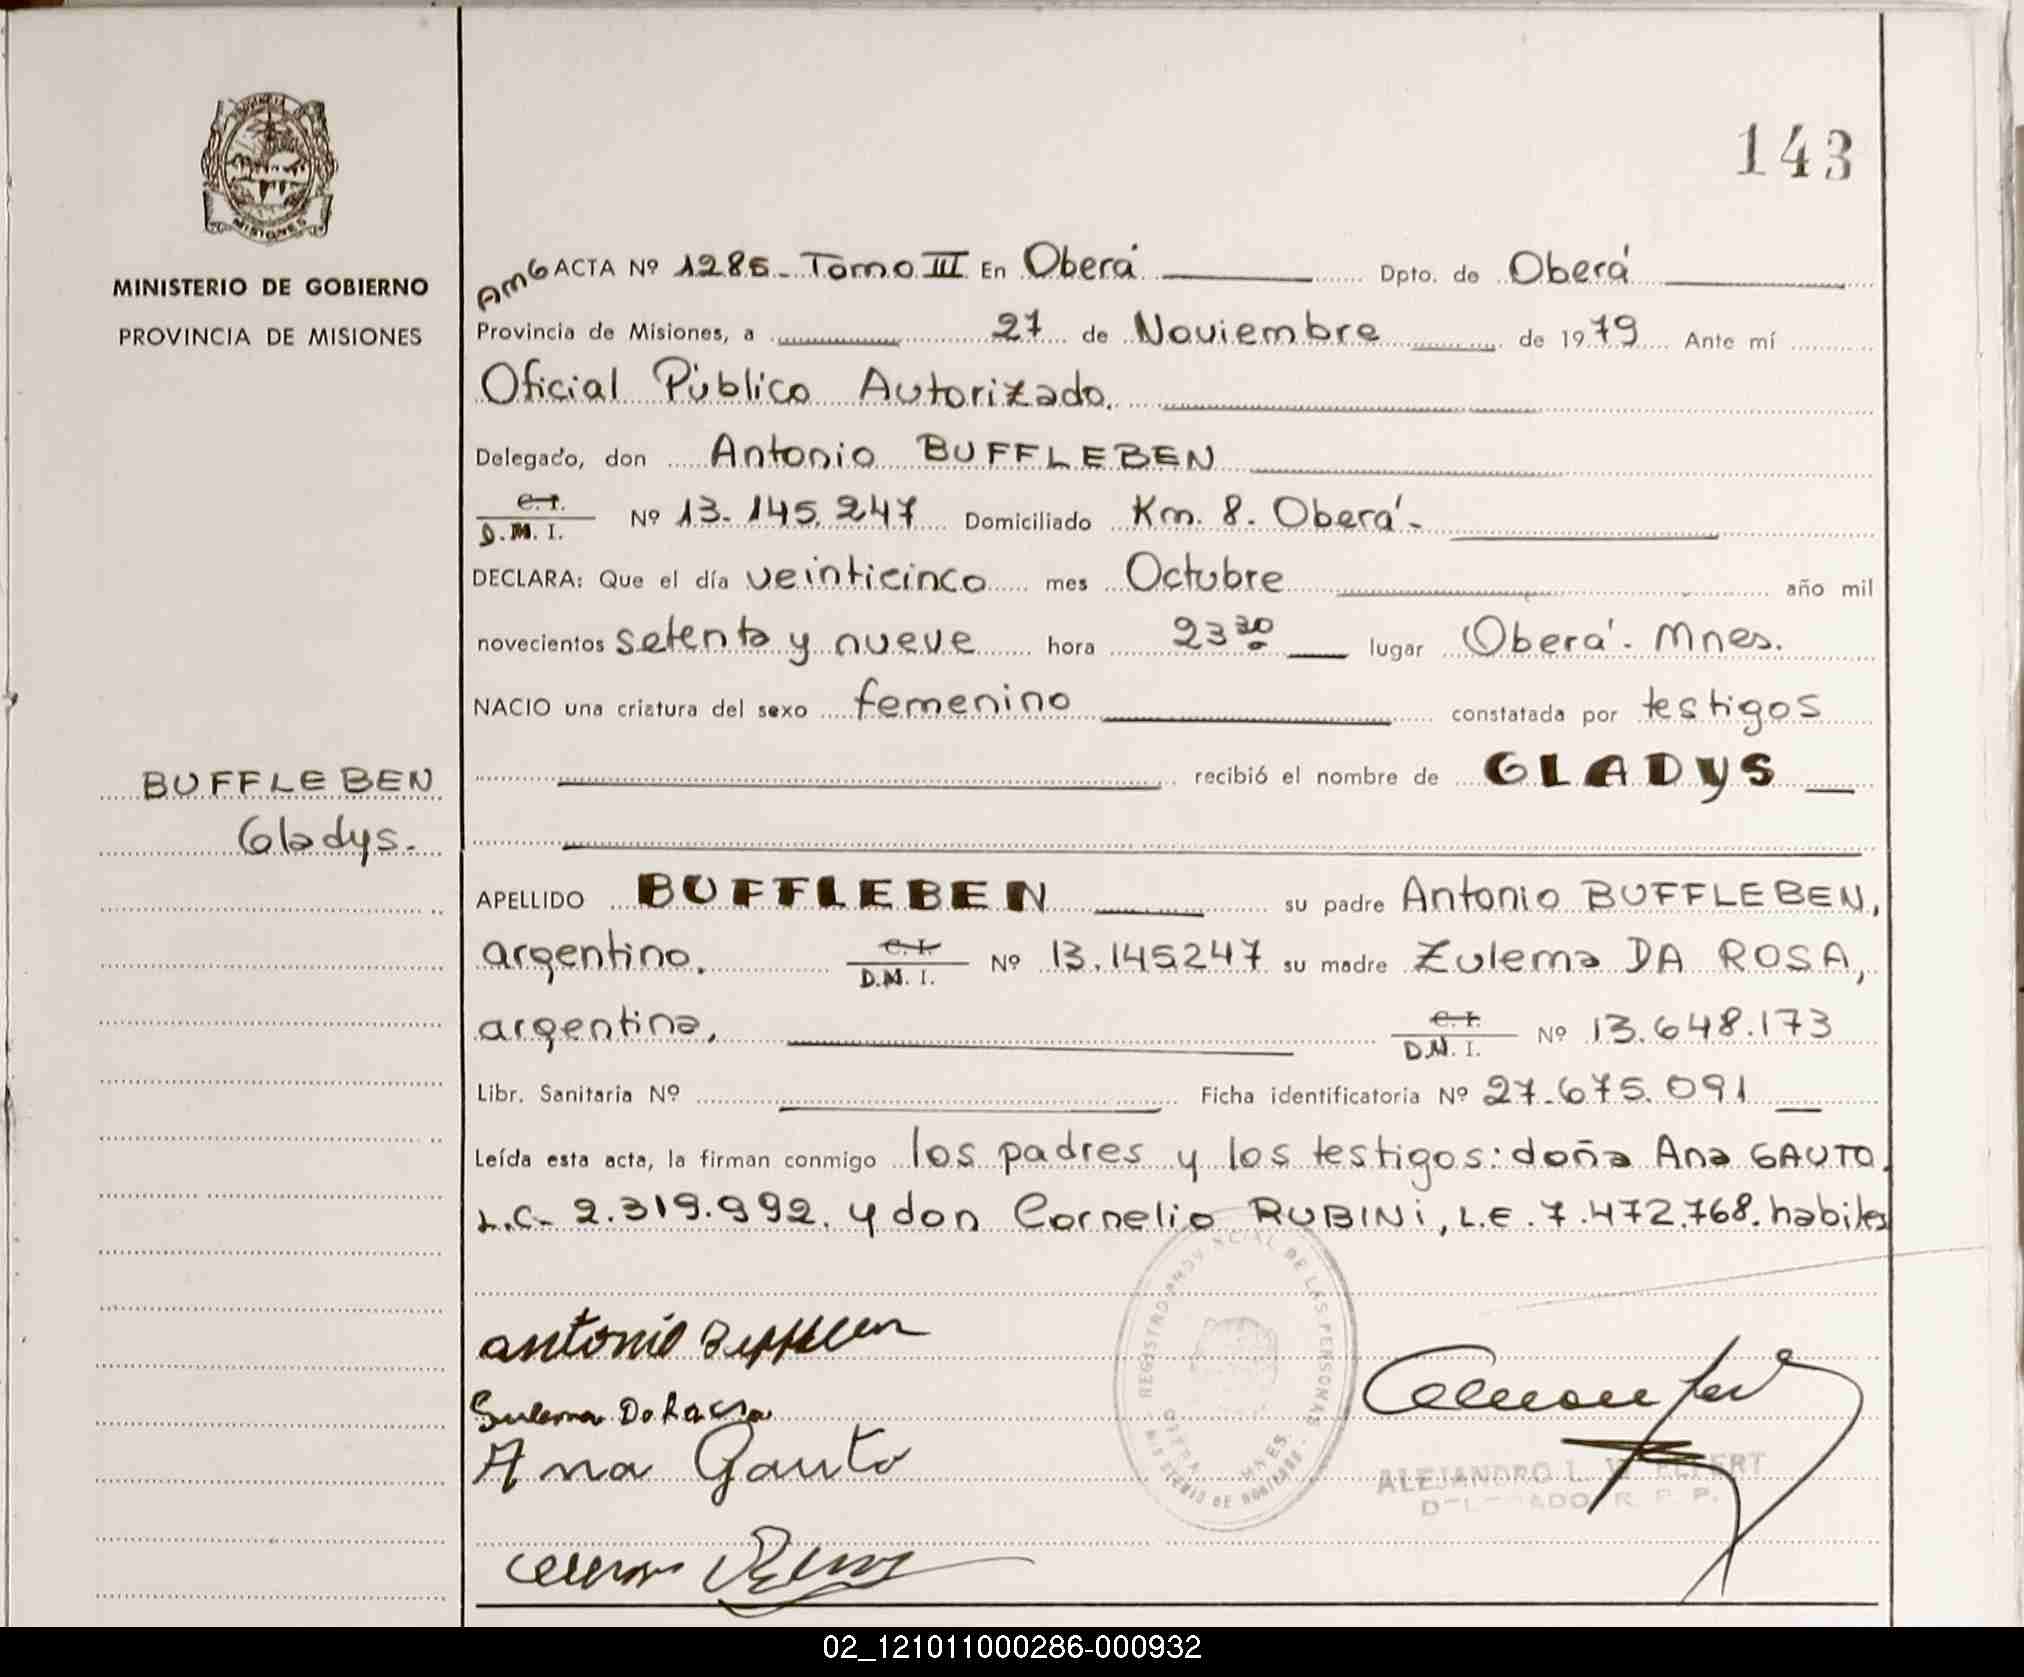 143
MINISTERIO DE GOBIERNO
PROVINCIA DE MISIONES
MISIONES
AMG ACTA Nº 1285- Tomo III En Oberá Dpto. de Oberá
Provincia de Misiones, a 27 de Noviembre de 1979 Ante mí
Oficial Público Autorizado.
Delegado, don Antonio BUFFLEBEN
C.I.
D.M.I. Nº 13.145.247 Domiciliado Km. 8. Oberá-
DECLARA: Que el día veinticinco mes Octubre año mil
novecientos setenta y nueve hora 23 30 lugar Oberá. Mnes.
NACIO una criatura del sexo femenino constatada por testigos
recibió el nombre de GLADYS
BUFFLEBEN
Gladys.
APELLIDO BUFFLEBEN su padre Antonio BUFFLEBEN,
argentino. C.I.
D.N.I. Nº 13.145247 su madre Zulema DA ROSA,
argentina, C.I.
D.N.I. Nº 13.648.173
Libr. Sanitaria Nº Ficha identificatoria Nº 27.675.091
Leída esta acta, la firman conmigo los padres y los testigos: doña Ana GAUTO.
L.C- 2.319.992. y don Cornelio RUBINi, L.E. 7.472.768. habiles
REGISTRO PROVINCIAL DE LAS PERSONAS
Antonio
Ana Gauto
ALEJANDRO L.
DELEGADO R. P. P.
02_121011000286-000932